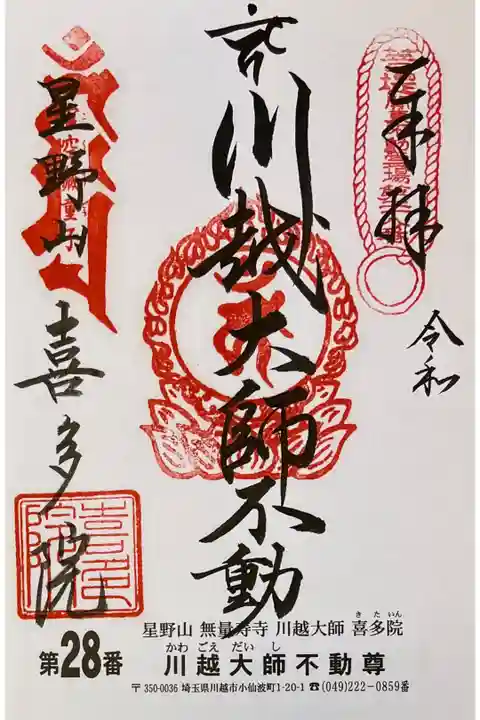 奉拝
令和
川越大師不動
星野山
喜多院
星野山 無量寿寺 川越大師 喜多院
きたいん
第28番
かわ ごえ だい し
川越大師不動尊
〒350-0036 埼玉県川越市小仙波町1-20-1 ☎(049)222-0859番